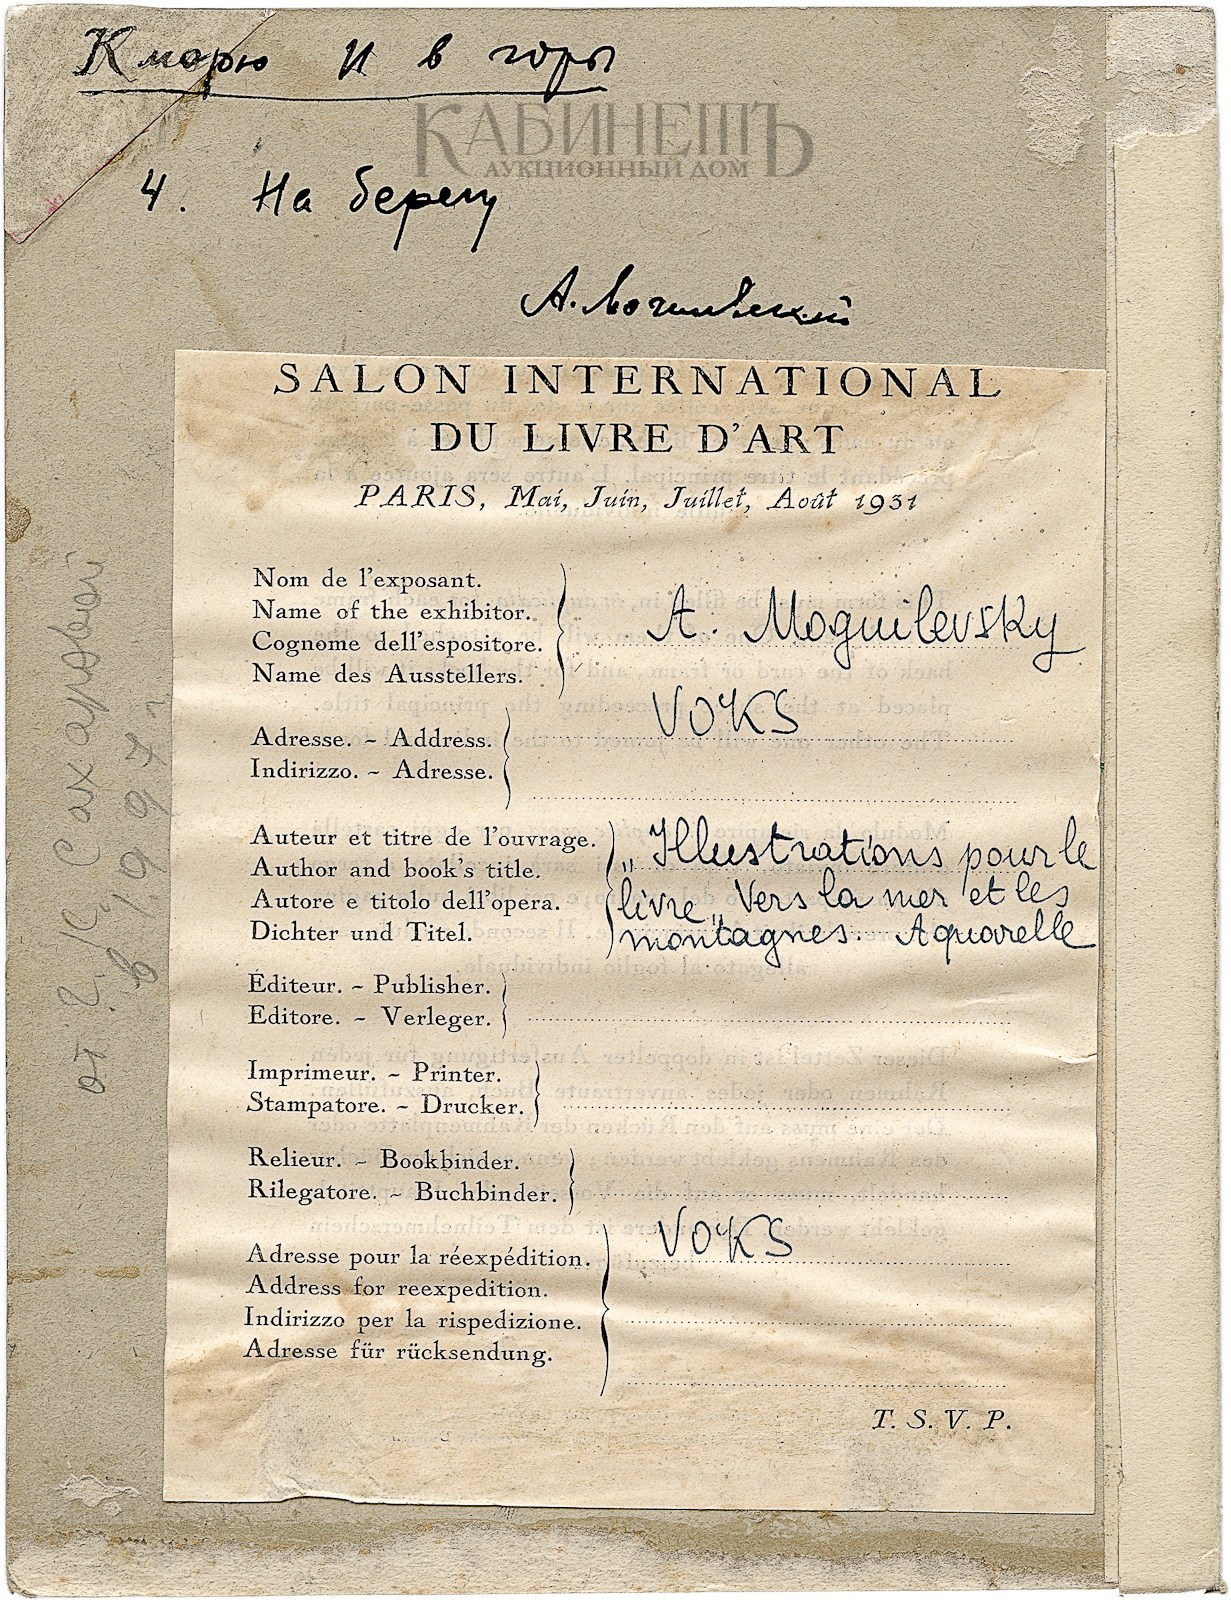 К морю и в горы
КАБИНЕТЪ
АУКЦИОННЫЙ ДОМ
4. На берегу
А. Могилевский
SALON INTERNATIONAL
DU LIVRE D'ART
PARIS, Mai, Juin, Juillet, Août 1931
Nom de l'exposant.
Name of the exhibitor.
Cognome dell'espositore.
Name des Ausstellers.
A. Moguilevsky
Adresse. - Address.
Indirizzo. - Adresse.
VOKS
Auteur et titre de l'ouvrage.
Author and book's title.
Autore e titolo dell'opera.
Dichter und Titel.
„Illustrations pour le
livre „Vers la mer et les
montagnes. Aquarelle
Éditeur. - Publisher.
Editore. - Verleger.
Imprimeur. - Printer.
Stampatore. - Drucker.
Relieur. - Bookbinder.
Rilegatore. - Buchbinder.
Adresse pour la réexpédition.
Address for reexpedition.
Indirizzo per la rispedizione.
Adresse für rücksendung.
VOKS
T. S. V. P.
от Сахаровой
в 1997 г.